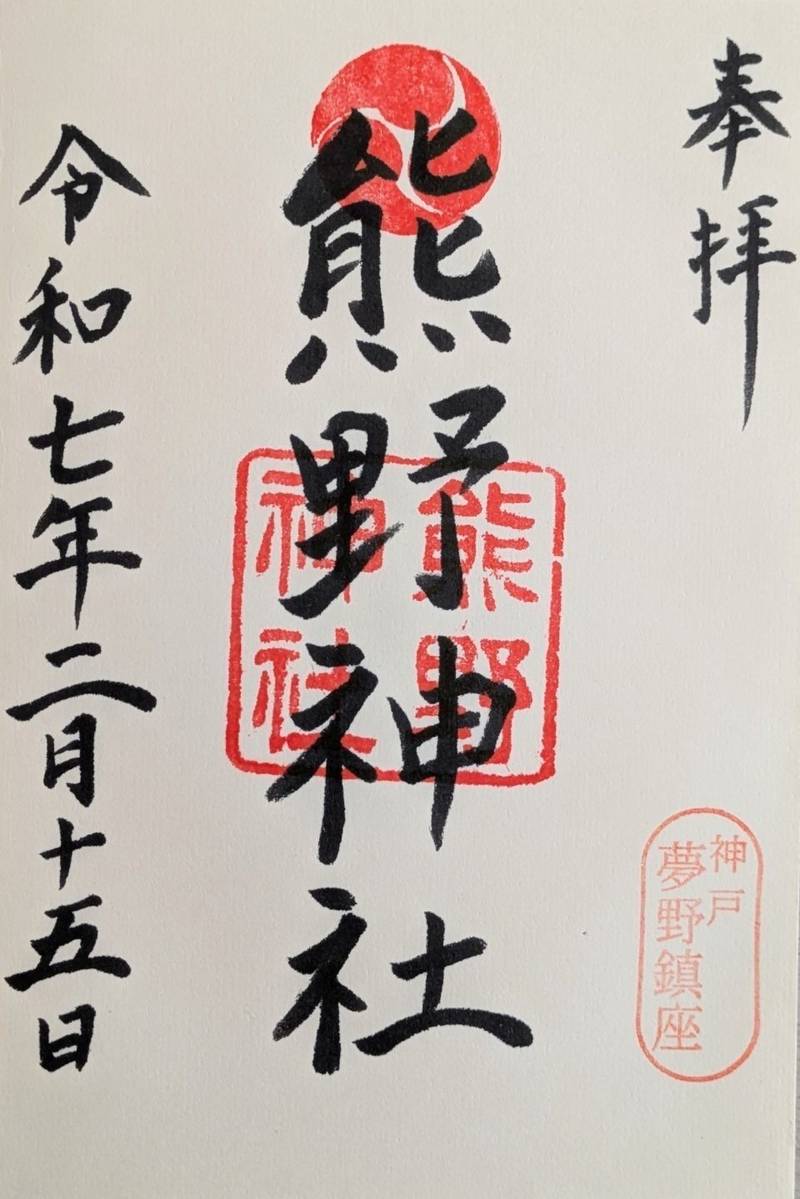 奉拝
神戸
夢野鎮座
熊野神社
熊野
神社
令和七年二月十五日